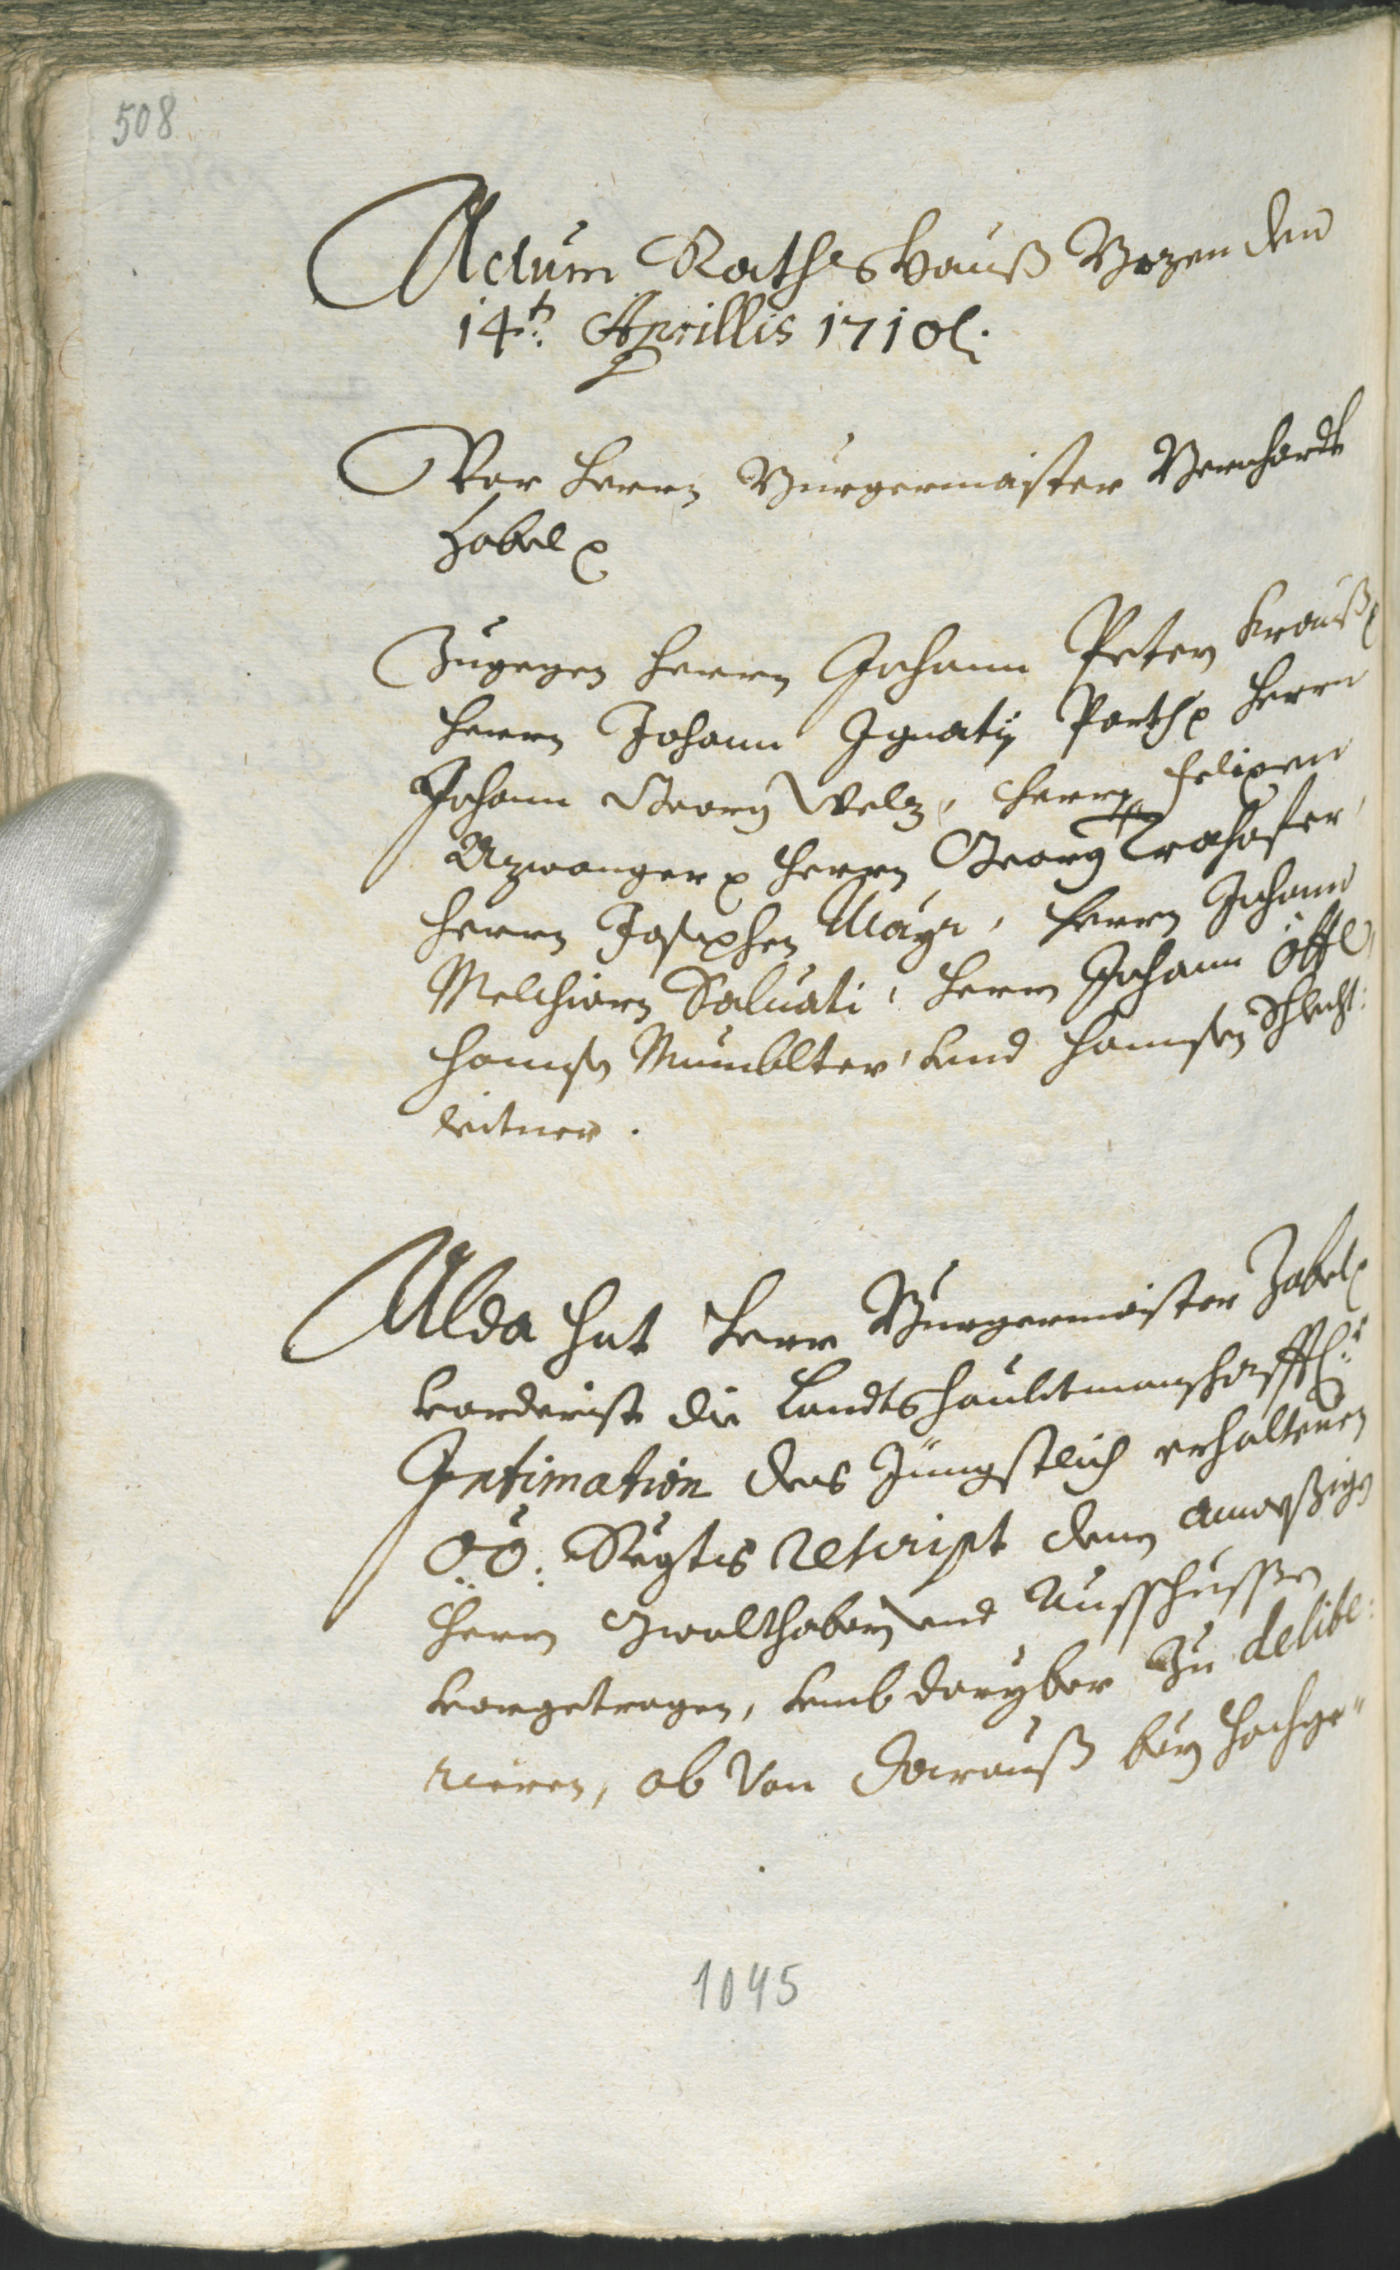 508
Actum Rathshauß Bozen den
14t: Aprillis 1710
Vor Herrn Burgermaister Bernhardt
Zobel
Zugegen Herrn Johann Peter Krauß
Herrn Johann Ignatij Part Herrn
Johann Georg Welz, Herrn Felixen
Azwanger Herrn Georg Trahofer,
Herrn Josephen Mayr, Herrn Johann
Melchiorn Saluati, Herrn Johann
Hannsen Mumblter, und Hannsen Schlecht:
leitner.
Alda hat Herr Burgermaister Zobel
vorderist die Landtshaubtmanschafftl:e
Intimation des Jüngstlich erhaltenen
OÖ: Regts rescript denen anweßigen
Herrn Gwalthabern und Ausschussen
vorgetragen, umb darüber zu delibe:
rieren, ob von darauß bey hochge"
1045